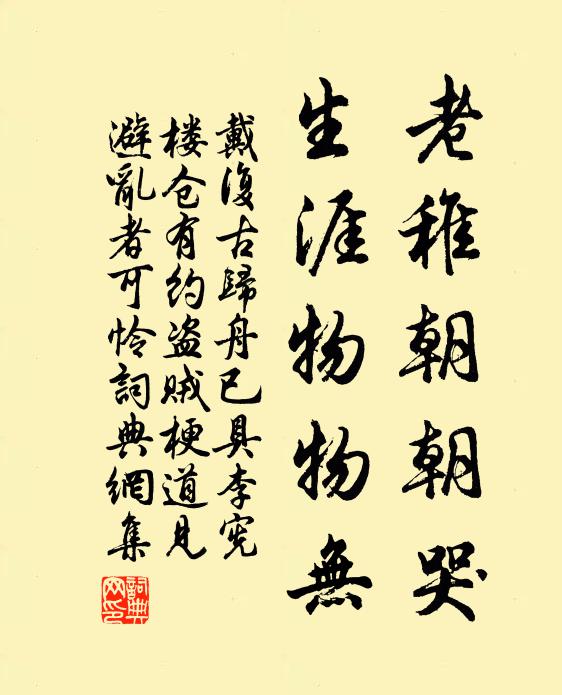 老稚朝朝哭
生涯物物無
戴復古歸舟已具李宪
楼仓有约盗贼梗道见
避亂者可怜詞典網集
詞典
网印